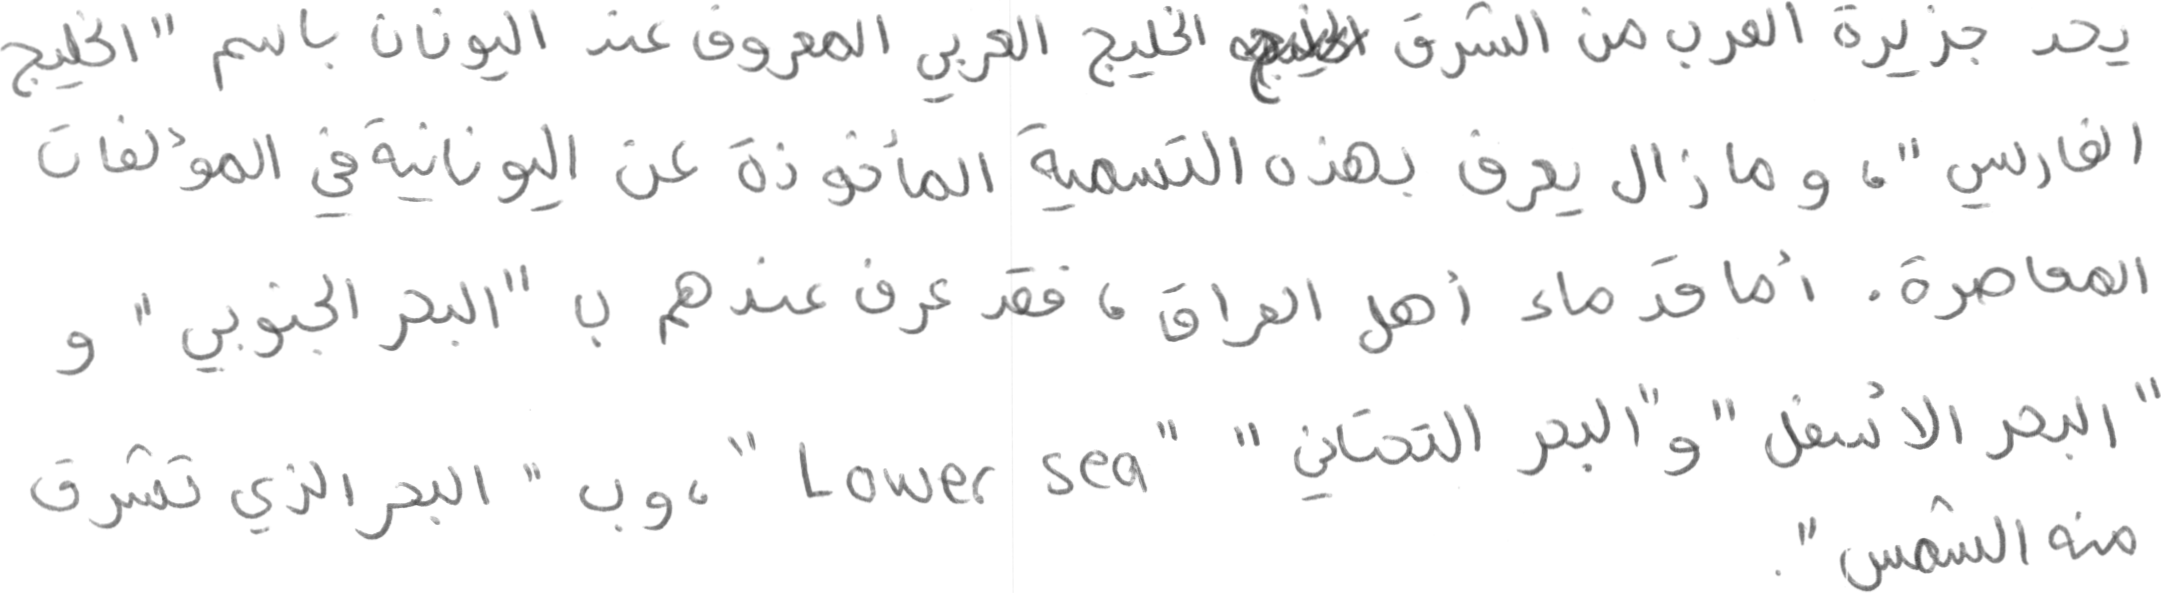 يحد جزيرة العرب من الشرق الخليج العربي المعروف عند اليونان باسم "الخليج
الفارسي"، وما زال يعرف بهذه التسمية المأخوذة عن اليونانية في المؤلفات
المعاصرة. أما قدماء أهل العراق، فقد عرف عندهم ب "البحر الجنوبي" و
"البحر الأسفل" و"البحر التحتاني" "Lower sea"، وب "البحر الذي تشرق
منه الشمس".